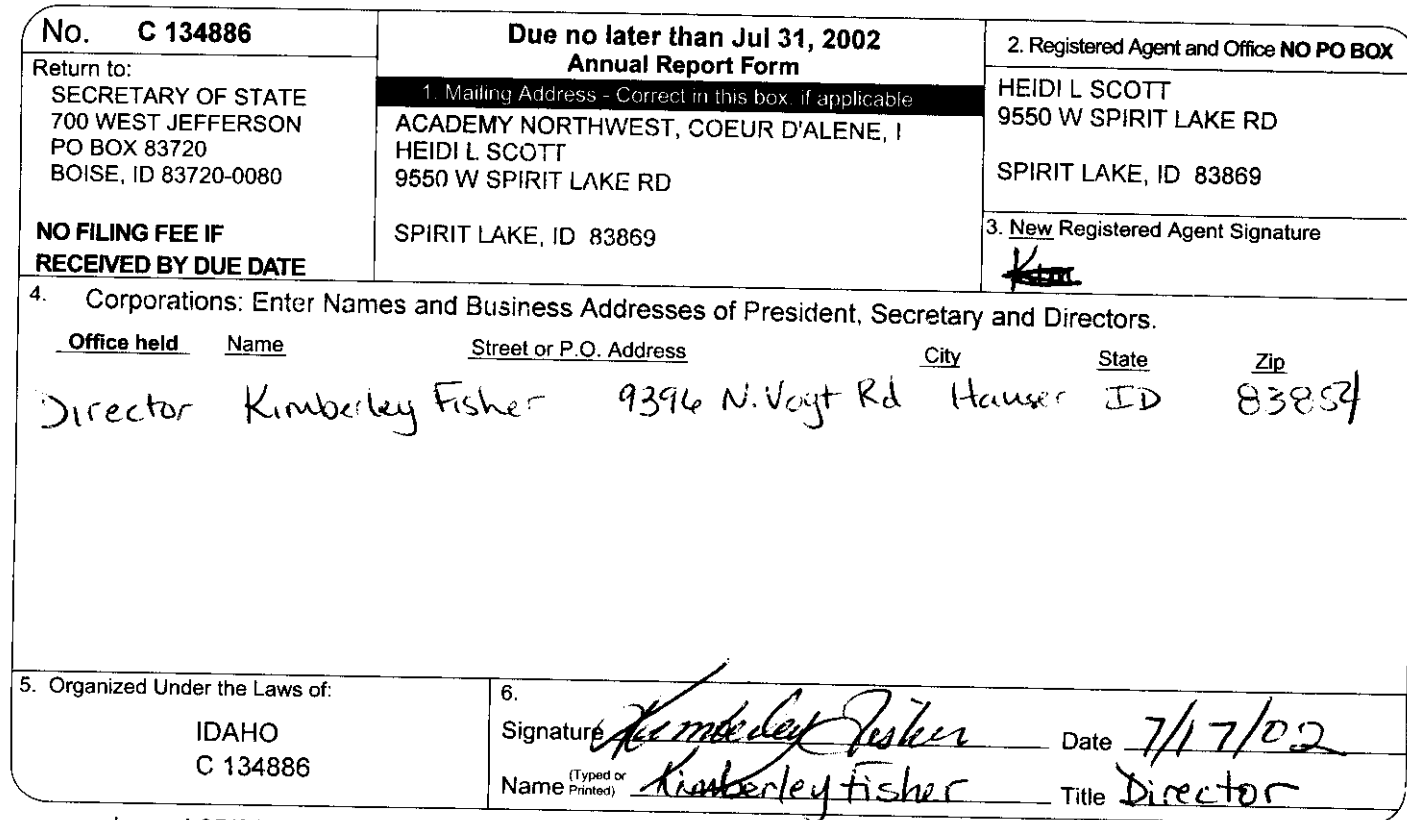 No. C 134886
Return to:
SECRETARY OF STATE
700 WEST JEFFERSON
PO BOX 83720
BOISE, ID 83720-0080
NO FILING FEE IF
RECEIVED BY DUE DATE
Due no later than Jul 31, 2002
Annual Report Form
1. Mailing Address - Correct in this box, if applicable
ACADEMY NORTHWEST, COEUR D'ALENE, I
HEIDI L SCOTT
9550 W SPIRIT LAKE RD
SPIRIT LAKE, ID 83869
2. Registered Agent and Office NO PO BOX
HEIDI L SCOTT
9550 W SPIRIT LAKE RD
SPIRIT LAKE, ID 83869
3. New Registered Agent Signature
4. Corporations: Enter Names and Business Addresses of President, Secretary and Directors.
Office held Name Street or P.O. Address City State Zip
Director Kimberley Fisher 9396 N. Vogt Rd Hauser ID 83854
5. Organized Under the Laws of:
IDAHO
C 134886
6.
Signature Kimberley Fisher Date 7/17/02
Name (Typed or Printed) Kimberley Fisher Title Director